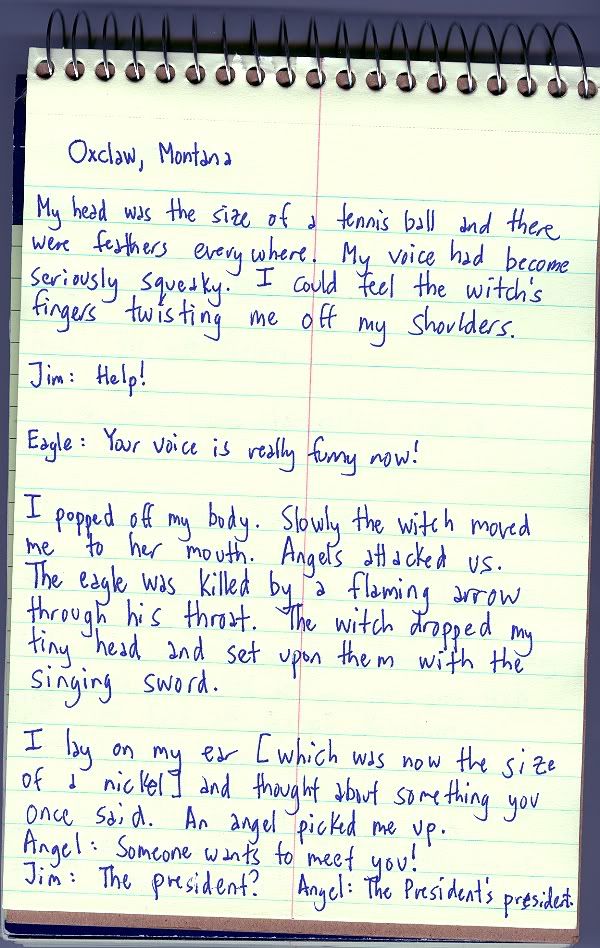 Oxclaw, Montana
My head was the size of a tennis ball and there
were feathers everywhere. My voice had become
seriously squeaky. I could feel the witch's
fingers twisting me off my shoulders.
Jim: Help!
Eagle: Your voice is really funny now!
I popped off my body. Slowly the witch moved
me to her mouth. Angels attacked us.
The eagle was killed by a flaming arrow
through his throat. The witch dropped my
tiny head and set upon them with the
singing sword.
I lay on my ear [which was now the size
of a nickel] and thought about something you
once said. An angel picked me up.
Angel: Someone wants to meet you!
Jim: The president? Angel: The President's president.